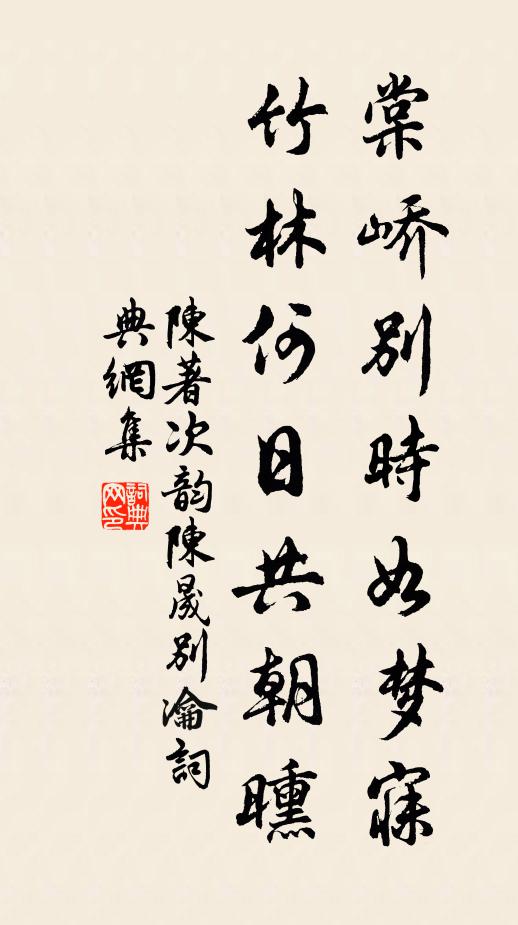 棠嶠别時如梦寐
竹林何日共朝曛
陳著次韵陳晟别瀹詞
典網集
詞典
网印